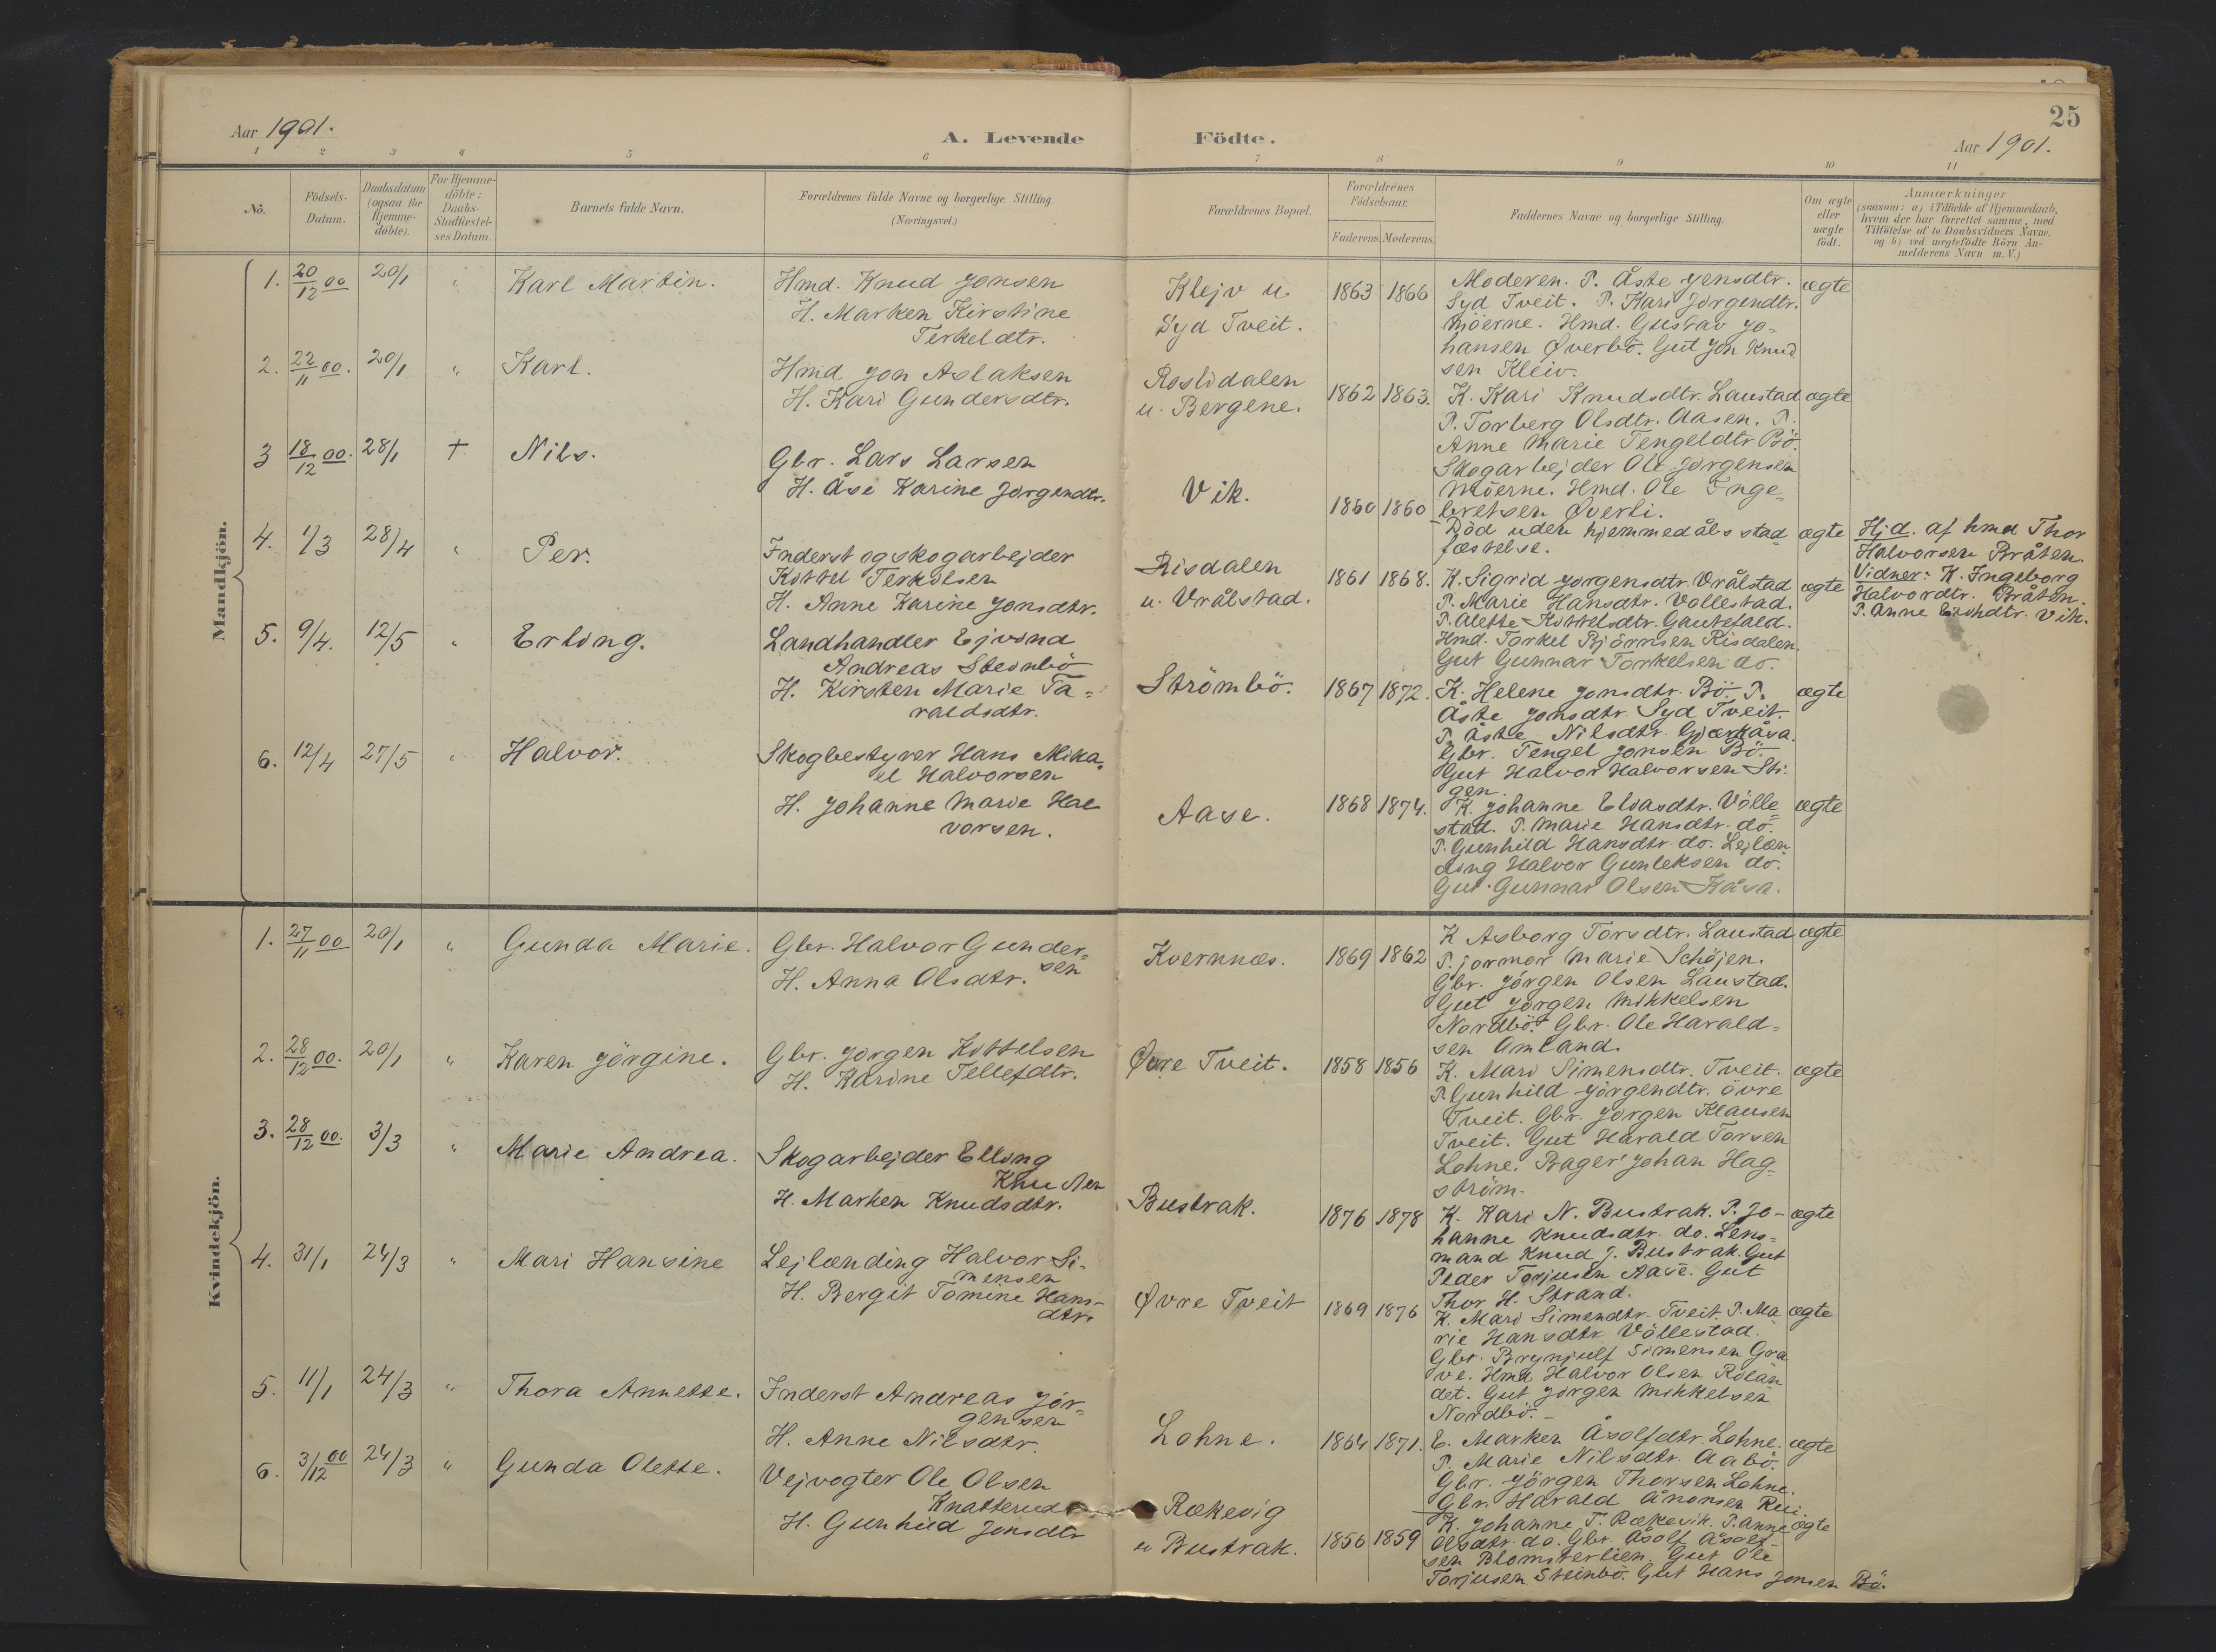 25
Aar 1901.
A. Levende Födte.
Aar 1901.
1 2 3 4 5 6 7 8 9 10 11
No.
Födsels-
Datum.
Daabsdatum
(ogsaa for
Hjemme-
döbte).
For Hjemme-
döbte:
Daabs-
Stadfæstel-
ses Datum.
Barnets fulde Navn.
Forældrenes fulde Navne og borgerlige Stilling.
(Næringsvei.)
Forældrenes Bopæl.
Forældrenes
Födselsaar.
Faderens. Moderens.
Faddernes Navne og borgerlige Stilling.
Om ægte
eller
uægte
födt.
Anmærkninger
(saasom: a) i Tilfælde af Hjemmedaab,
hvem der har forrettet samme, med
Tilföielse af to Daabsvidners Navne.
og b) ved uægtefödte Börn An-
melderens Navn m. V.)
Mandkjön.
1. 20/12 00 20/1 " Karl Martin.
Hmd. Knud Jonsen
H. Marken Kirstine
Terkeldtr.
Klejv u.
Syd Tveit.
1863 1866
Moderen. P. Åste Jensdtr.
Syd Tveit. P. Kari Jorgendtr.
Möerne. Hmd. Gustav Jo-
hansen Øverbö. Gut Jon Knud
sen Kleiv.
ægte
2. 22/11 00. 20/1 " Karl.
Hmd Jon Aslaksen
H. Kari Gundersdtr.
Roslidalen
u. Bergene.
1862 1863.
K. Kari Knudsdtr. Laustad
P. Torberg Olsdtr. Aasen. P.
Anne Marie Tengeldtr Bö.
Skogarbejder Ole Jörgensen
Möerne. Hmd. Ole Inge-
bretsen Øverli.
ægte
3 18/12 00. 28/1 + Nils.
Gbr. Lars Larsen
H. Åse Karine Jorgendtr.
Vik.
1860 1860
Död uden hjemmedåbs stad
fæstelse.
ægte
Hjd. af hmd Thor
Halvorsen Bråten.
Vidner: K. Ingeborg
Halvordtr. Bråten.
P. Anne dtr. Vik.
4. 1/3 28/4 " Per.
Inderst og skogarbejder
Kittel Terkelsen
H. Anne Karine Jonsdtr.
Risdalen
u. Vrålstad.
1861 1868.
K. Sigrid Jorgensdtr. Vrålstad
P. Marie Hansdtr. Vollestad.
P. Alette Kittelsdtr. Gautefald.
Hmd. Torkel Björnsen Risdalen.
Gut Gunnar Torkelsen do.
ægte
5. 9/4. 12/5 " Erling.
Landhandler Ejvind
Andreas Steinbö
H. Kirsten Marie Ta-
raldsdtr.
Strömbö.
1867 1872.
K. Helene Jonsdtr. Bö. P.
Åste Jonsdtr. Syd Tveit.
P. Åste Nilsdtr. Gjærkåsa.
Gbr. Tengel Jonsen Bö.
Gut Halvor Halvorsen Sti-
gen.
ægte
6. 12/4 27/5 " Halvor.
Skogbestyrer Hans Mika-
el Halvorsen
H. Johanne Marie Hal-
vorsen.
Aase.
1868 1874.
K. Johanne Eliasdtr. Völle-
stad. P. Marie Hansdtr. do.
P. Gunhild Hansdtr. do. Lejlæn
ding Halvor Gunleksen do.
Gut Gunnar Olsen Kåsa.
ægte
Kvindekjön.
1. 27/11 00 20/1 " Gunda Marie.
Gbr. Halvor Gunder-
sen
H. Anna Olsdtr.
Kvernnæs.
1869 1862
K Asborg Torsdtr. Laustad
P. jormor Marie Schöjen.
Gbr. Jörgen Olsen Laustad.
Gut Jörgen Mikkelsen
Nordbö. Gbr. Ole Harald-
sen Omland.
ægte
2. 28/12 00. 20/1 " Karen Jörgine.
Gbr. Jörgen Kittelsen
H. Karine Tellefdtr.
Øvre Tveit.
1858 1856
K. Mari Simensdtr. Tveit.
P Gunhild Jörgendtr. övre
Tveit. Gbr. Jörgen Klausen
Tveit. Gut Harald Torsen
Lohne. Bager Johan Hag-
ström.
ægte
3. 28/12 00. 3/3 " Marie Andrea.
Skogarbejder Elling
Knudsen
H. Marken Knudsdtr.
Bustrak.
1876 1878
K. Kari N. Bustrak. P. Jo-
hanne Knudsdtr. do. Lens-
mand Knud J. Bustrak. Gut
Peder Torjusen Aase. Gut
Thor H. Strand.
ægte
4. 31/1 24/3 " Mari Hansine
Lejlænding Halvor Si-
mensen
H. Bergit Tomine Hans-
dtr.
Øvre Tveit
1869 1876
K. Mari Simendtr. Tveit. P. Ma
rie Hansdtr. Völlestad.
Gbr. Brynjulf Simensen Gra
ve. Hmd Halvor Olsen Rölan
det. Gut Jorgen Mikkelsen
Nordbö.
ægte
5. 11/1 24/3 " Thora Annette.
Inderst Andreas Jör-
gensen
H. Anne Nilsdtr.
Lohne.
1864 1871.
E. Marken Åsolfdtr. Lohne.
P. Marie Nilsdtr. Aabö.
Gbr. Jörgen Thorsen Lohne.
Gbr. Harald Ånonsen Rui.
ægte
6. 3/12 00 24/3 " Gunda Olette.
Vejvogter Ole Olsen
Knatterud
H. Gunhild Jonsdtr
Rækevig
u Bustrak.
1856 1859
K. Johanne T. Rækevik. P. Anne
Olsdtr. do. Gbr. Åsolf Åsolf-
sen Blomsterlien. Gut Ole
Torjusen Steinbö. Gut Hans Jonsen Bö.
ægte